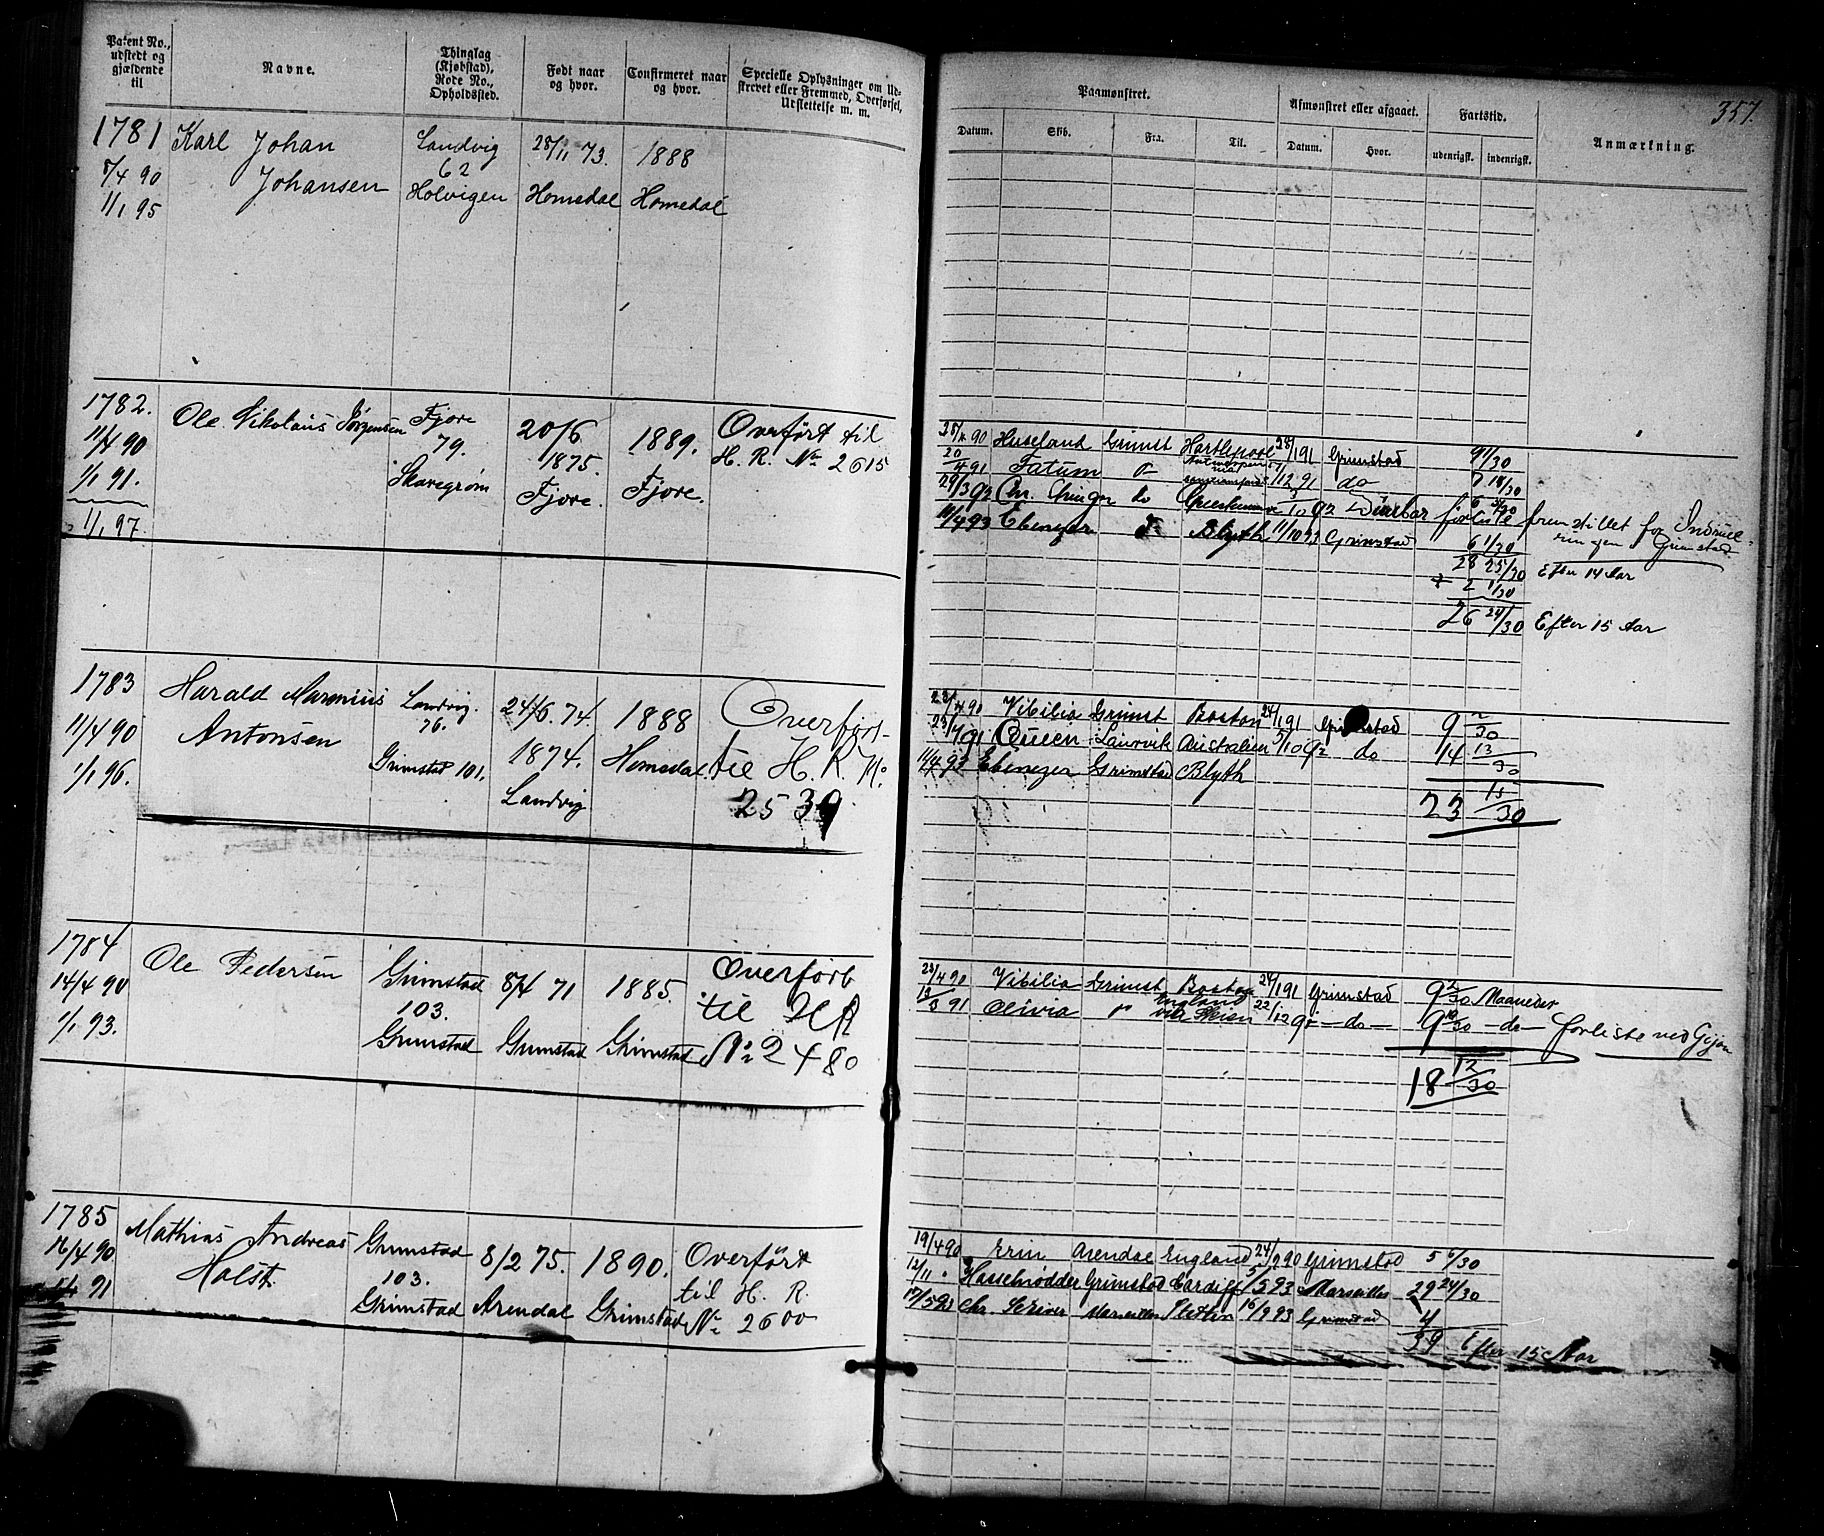 Patent No., udstedt og gjældende til
Navne.
Thinglag (Kjøbstad), Rode No., Opholdssted.
Født naar og hvor.
Confirmeret naar og hvor.
Specielle Oplysninger om Udskrevet eller Fremmed, Overførsel, Udslettelse m. m.
1781 Karl Johan Landvig 28/11 73. 1888
8/4 90 Johansen 62
11/1 95 Holvigen Homedal Homedal
1782. Ole Nikolaus Jørgensen Fjære 20/6 1889. Overført til
11/4 90 79. 1875. H. R. No 2615
1/1 91. Skaregrøm Fjære. Fjære.
1/1 97.
1783 Harald Marinius Landvig. 24/6. 74. 1888 Overført
11/4 90 Antonsen 76. 1874. Homedal. til H. R. No.
1/1 96. Grimstad 101. Landvig 2539
1784 Ole Pedersen Grimstad 8/4 71 1885. Overført
14/4 90 103. til HR
1/1 93. Grimstad Grimstad Grimstad No 2480
1785 Mathias Andreas Grimstad 8/2 75. 1890. Overført
16/4 90. Holst. 103. til H. R.
91 Grimstad Arendal Grimstad No 2600
357.
Paamønstret. Afmønstret eller afgaaet. Fartstid. Anmærkning.
Datum. Skib. Fra. Til. Datum. Hvor. udenrigsk. indenrigsk.
90 Huseland Grimst Hartlepool 28/1 91 Grimstad 9 1/30
20/4 91 Fatum 12 91 do 18/30
29/3 92 Chr. 92 forliste fremstillet for
11/4 93 Ebenezer Blyth 11/10 93 Grimstad 6 1/30 Grimstad
28 25/30 Efter 14 Aar
2 1/30
26 24/30 Efter 15 Aar
23/4 90 Vibilia Grimst Boston 24/1 91 Grimstad 9 2/30
91 Queen Laurvik Australien 5/10 92 do 14 13/30
11/4 93 Ebenezer Grimstad Blyth
23 15/30
23/4 90 Vibilia Grimst Boston 24/1 91 Grimstad 9 2/30 Maaneder
91 Olivia England via Skien 22/12 91 - do - 9 10/30 - do - forliste ved Gijon
18 12/30
19/4 90 Erin Arendal England 24/9 90 Grimstad 5 6/30
12/11 Hasselnødden Grimstad Cardiff 5/5 93 Marseilles 29 24/30
17/5 93 Chr. Scriver Marseilles Stettin 16/9 93 Grimstad 4
39 Efter 15 Aar